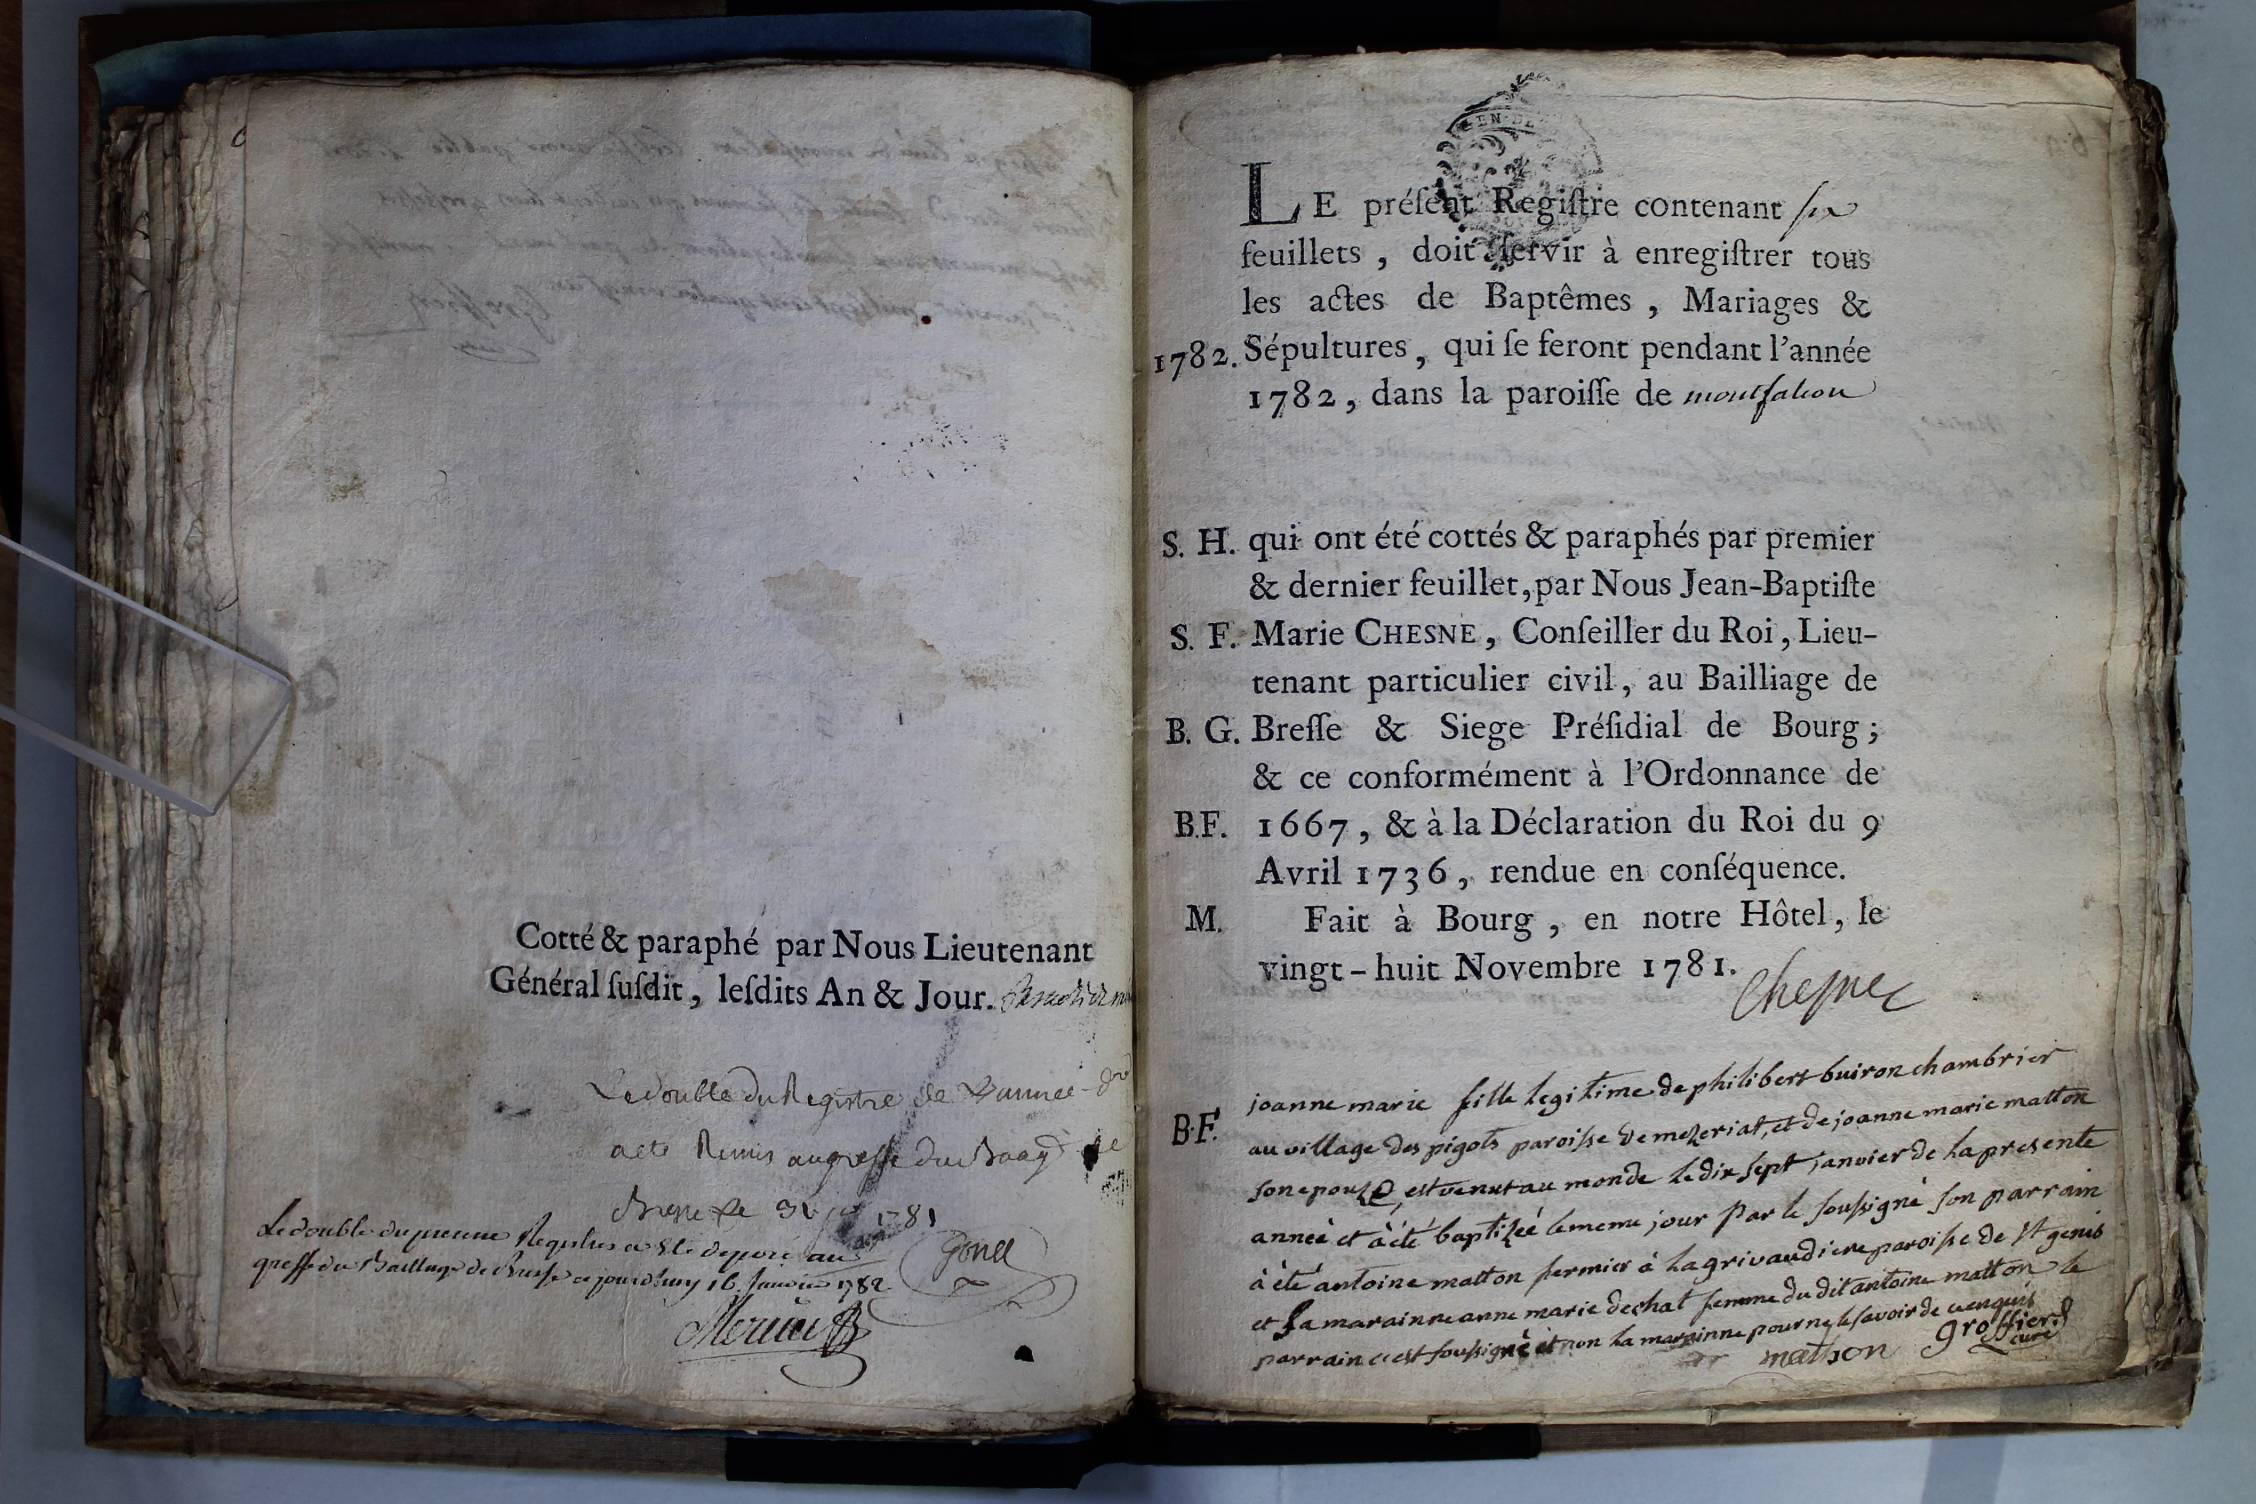 Cotté & paraphé par Nous Lieutenant
Général ſuſdit, leſdits An & Jour.
Le double du Registre de L'année
acte Remis au greffe du
Bresse le 31 1781
Gonel
Le double du Registre a été deposé au
greffe du Bailliage de Bresse ce jourd'huy 16 Janvier 1782
LE préſent Regiſtre contenant six
feuillets, doit ſervir à enregiſtrer tous
les actes de Baptêmes, Mariages &
1782. Sépultures, qui ſe feront pendant l'année
1782, dans la paroiſſe de montfalcon
S. H. qui ont été cottés & paraphés par premier
& dernier feuillet, par Nous Jean-Baptiſte
S. F. Marie CHESNE, Conſeiller du Roi, Lieu-
tenant particulier civil, au Bailliage de
B. G. Breſſe & Siege Préſidial de Bourg;
& ce conformément à l'Ordonnance de
B.F. 1667, & à la Déclaration du Roi du 9
Avril 1736, rendue en conſéquence.
M. Fait à Bourg, en notre Hôtel, le
vingt-huit Novembre 1781.
Chesne
joanne marie fille legitime de philibert buiron chambrier
B.F. au village des pigots paroisse de mezeriat, et de joanne marie matton
son epouze, est venut au monde le dix sept janvier de la presente
année et à été baptizéé le meme jour par le soussigné son parrain
à été antoine matton fermier à la grivaudiere paroisse de st genis
et sa marainne anne marie dechat femme du dit antoine matton le
parrain c est soussigné et non la marainne pour ne le savoir de ce enquis
mathon groffier
curé